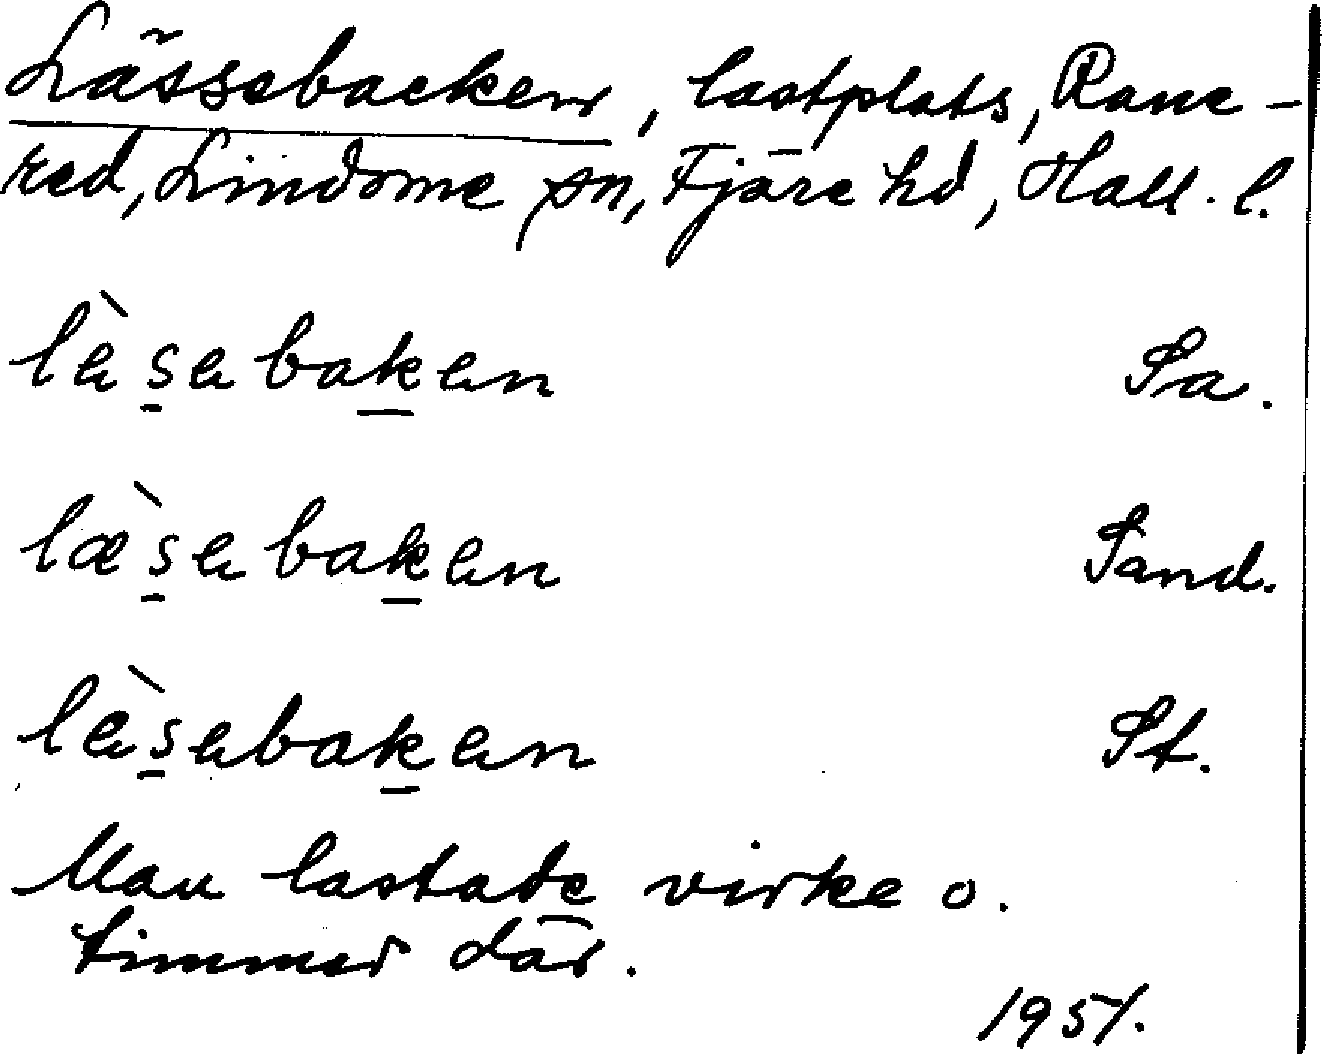 Lassebacken, lastplats, Rane-
red, Lindome sn, Fjäre hd, Hall. l.
lèsebaken Sa.
læ̀sebaken Sand.
lèsebaken St.
Man lastade virke o.
timmer där.
1951.